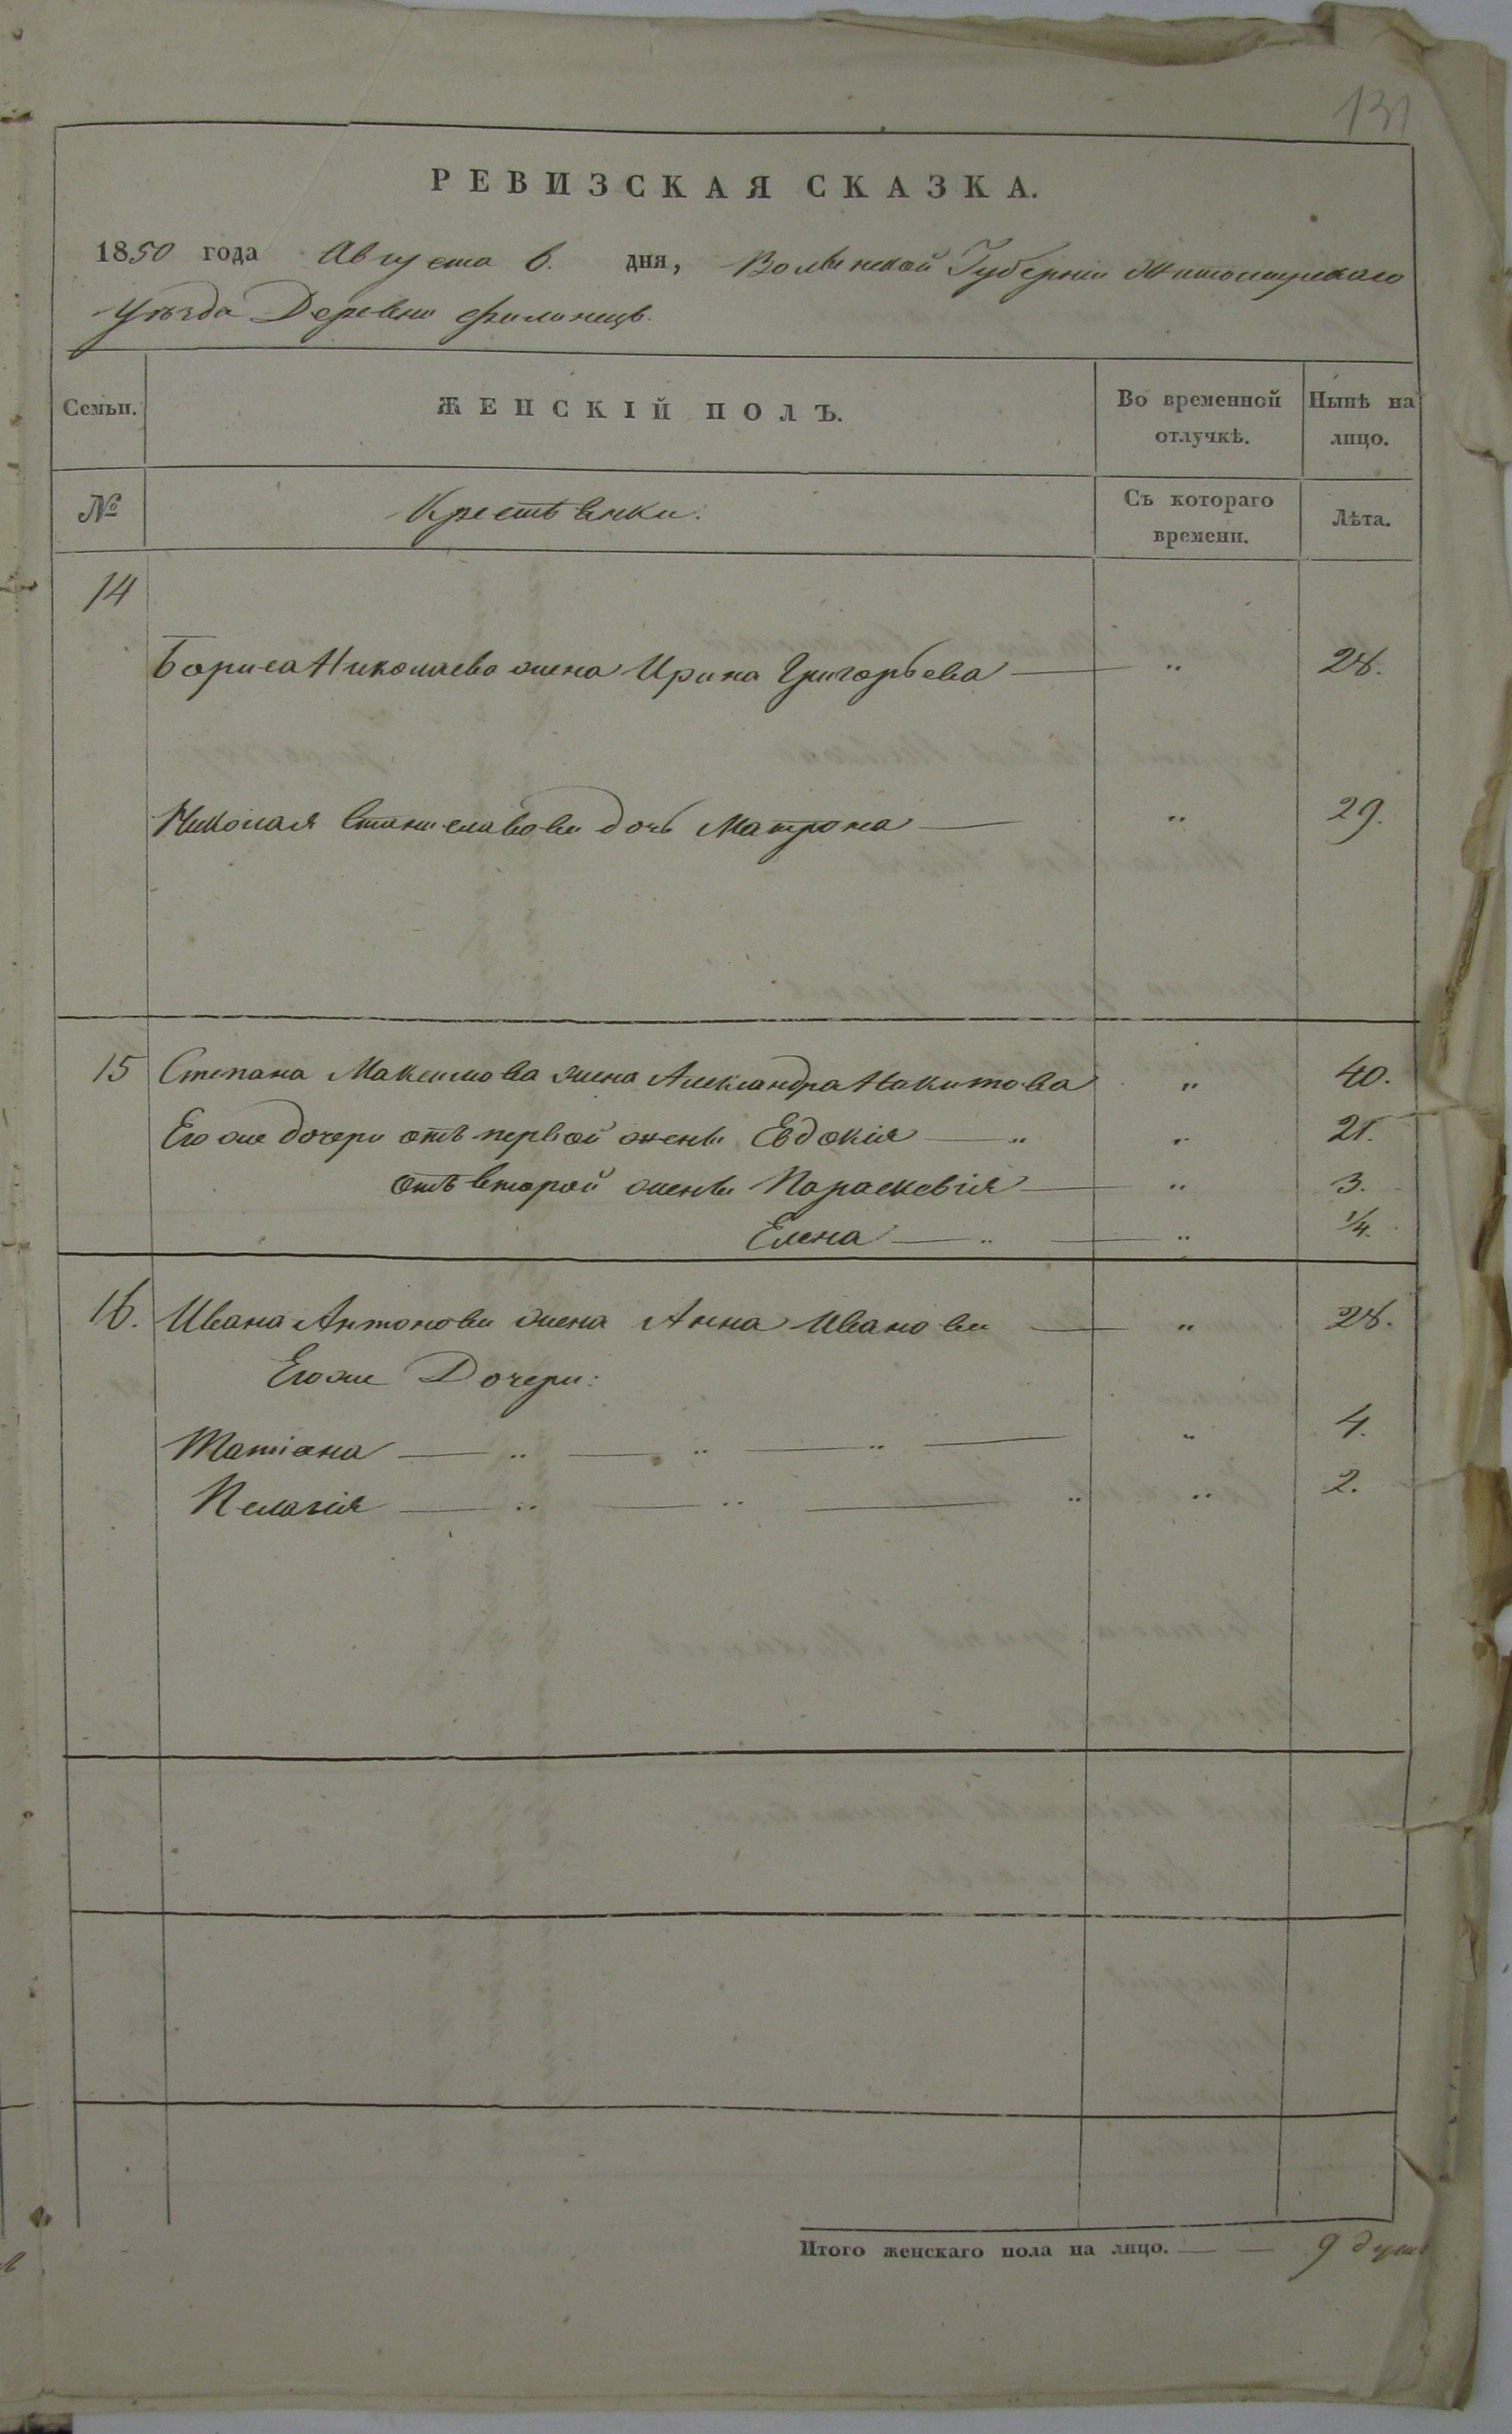 131
РЕВИЗСКАЯ СКАЗКА.
1850 года Августа 6. дня, Волынской Губерніи Житомирскаго
Уѣзда Деревни Филинецъ.
Семьи. ЖЕНСКІЙ ПОЛЪ. Во временной отлучкѣ. Нынѣ на лицо.
№ Крестьянки: Съ котораго времени. Лѣта.
14
Бориса Николаева жена Ирина Григорьева — „ 28.
Николая Станиславова дочь Матрона — „ 29.
15 Степана Максимова жена Александра Никитова „ 40.
Его же дочери отъ первой жены Евдокія — „ „ 21.
отъ второй жены Параскевія — „ 3.
Елена — „ — „ 1/4.
16. Ивана Антонова жена Анна Иванова — „ 28.
Его же Дочери:
Татіана — „ — „ — „ — „ 4.
Пелагія — „ — „ — „ „ 2.
Итого женскаго пола на лицо. — — 9 душъ